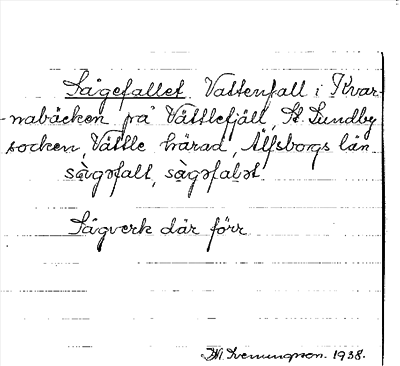 Sågefallet Vattenfall i Kvar-
nabäcken på Vättlefjäll, St. Lundby
socken, Vättle härad, Älfsborgs län
sågəfalt, sågəfalət.
Sågverk där förr
Wennungson. 1938.